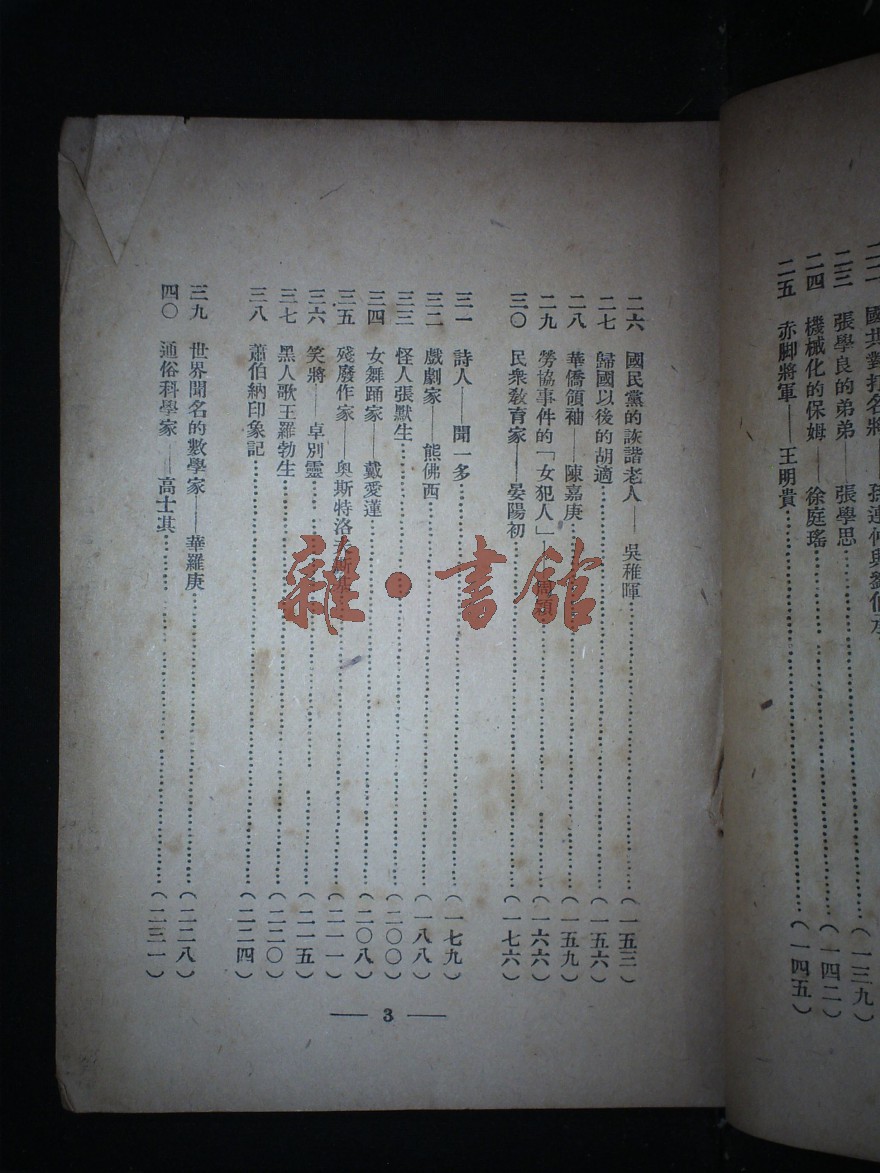 國共對打名將——孫連仲與劉伯承
二三 張學良的弟弟——張學思……(一三九)
二四 機械化的保姆——徐庭瑤……(一四二)
二五 赤脚將軍——王明貴……(一四五)
二六 國民黨的詼諧老人——吳稚暉……(一五三)
二七 歸國以後的胡適……(一五六)
二八 華僑領袖——陳嘉庚……(一五九)
二九 勞協事件的「女犯人」——……(一六六)
三〇 民衆敎育家——晏陽初……(一七六)
三一 詩人——聞一多……(一七九)
三二 戲劇家——熊佛西……(一八八)
三三 怪人張默生……(二〇〇)
三四 女舞踊家——戴愛蓮……(二〇八)
三五 殘廢作家——奧斯特洛夫斯基……(二一一)
三六 笑將——卓別靈……(二一五)
三七 黑人歌王羅勃生……(二二〇)
三八 蕭伯納印象記……(二二四)
三九 世界聞名的數學家——華羅庚……(二二八)
四〇 通俗科學家——高士其……(二三一)
— 3 —
雜·書館